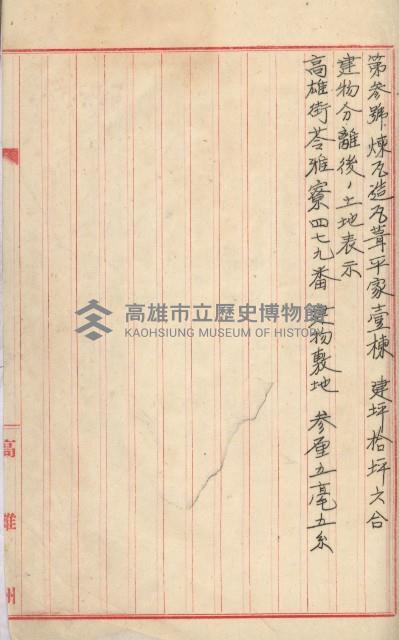 第参號 煉瓦造瓦葺平家壹棟 建坪拾坪六合
建物分離後ノ土地表示
高雄街苓雅寮四七九番 建物敷地 参厘五毫五糸
高雄市立歷史博物館
KAOHSIUNG MUSEUM OF HISTORY
高雄州